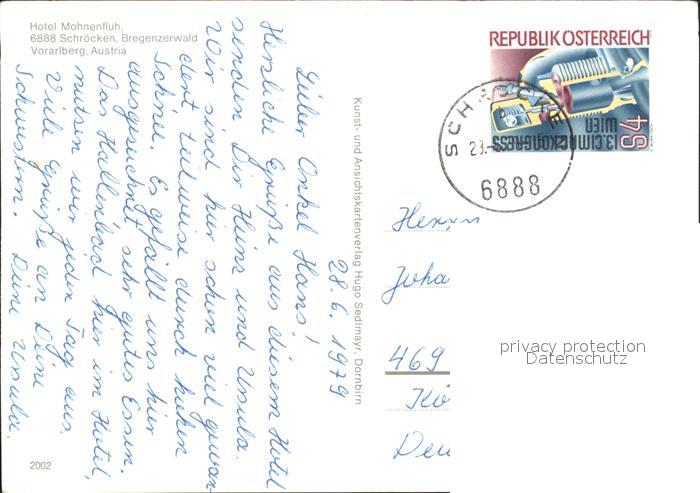 Hotel Mohnenfluh,
6888 Schröcken, Bregenzerwald
Vorarlberg, Austria
28.6.1979
Lieber Onkel Hans!
Herzliche Grüße aus diesem Hotel
senden Dir Heinz und Ursula.
Wir sind hier schon viel gewan-
dert teilweise durch hohen
Schnee. Es gefällt uns hier
ausgezeichnet, sehr gutes Essen.
Das Hallenbad hier im Hotel,
nutzen wir jeden Tag aus.
Viele Grüße an Deine
Schwestern. Deine Ursula.
2002
Kunst- und Ansichtskartenverlag Hugo Sedlmayr, Dornbirn
REPUBLIK ÖSTERREICH
13. CIMAC KONGRESS
WIEN
S4
6888
Herrn
Joha
469
Kö
Deu
privacy protection
Datenschutz